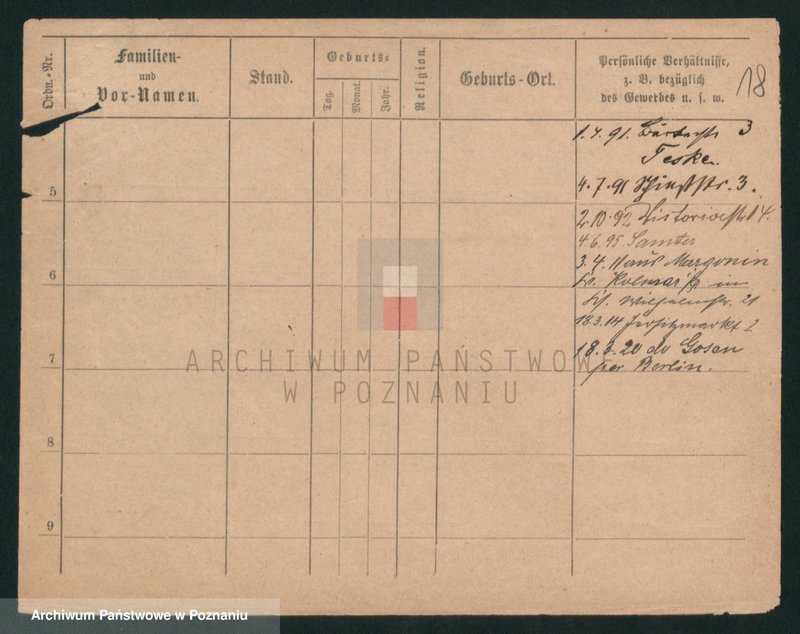 Ordn.-Nr.
Familien-
und
Vor-Namen.
Stand.
Geburts-
Tag.
Monat.
Jahr.
Religion.
Geburts-Ort.
Persönliche Verhältnisse,
z. B. bezüglich
des Gewerbes u. s. w.
18
1.4.91. 3
Teske.
5
4.7.91 Schießstr. 3.
2.10.92 14.
4.6.95 Samter
3.4.11 aus Margonin
6
Kr. Kolmar in
Wilhelmstr. 21
18.3.14 Jersitzmarkt 2
7
18.3.20 Gosen
per Berlin.
8
9
ARCHIWUM PAŃSTWOWE
W POZNANIU
Archiwum Państwowe w Poznaniu